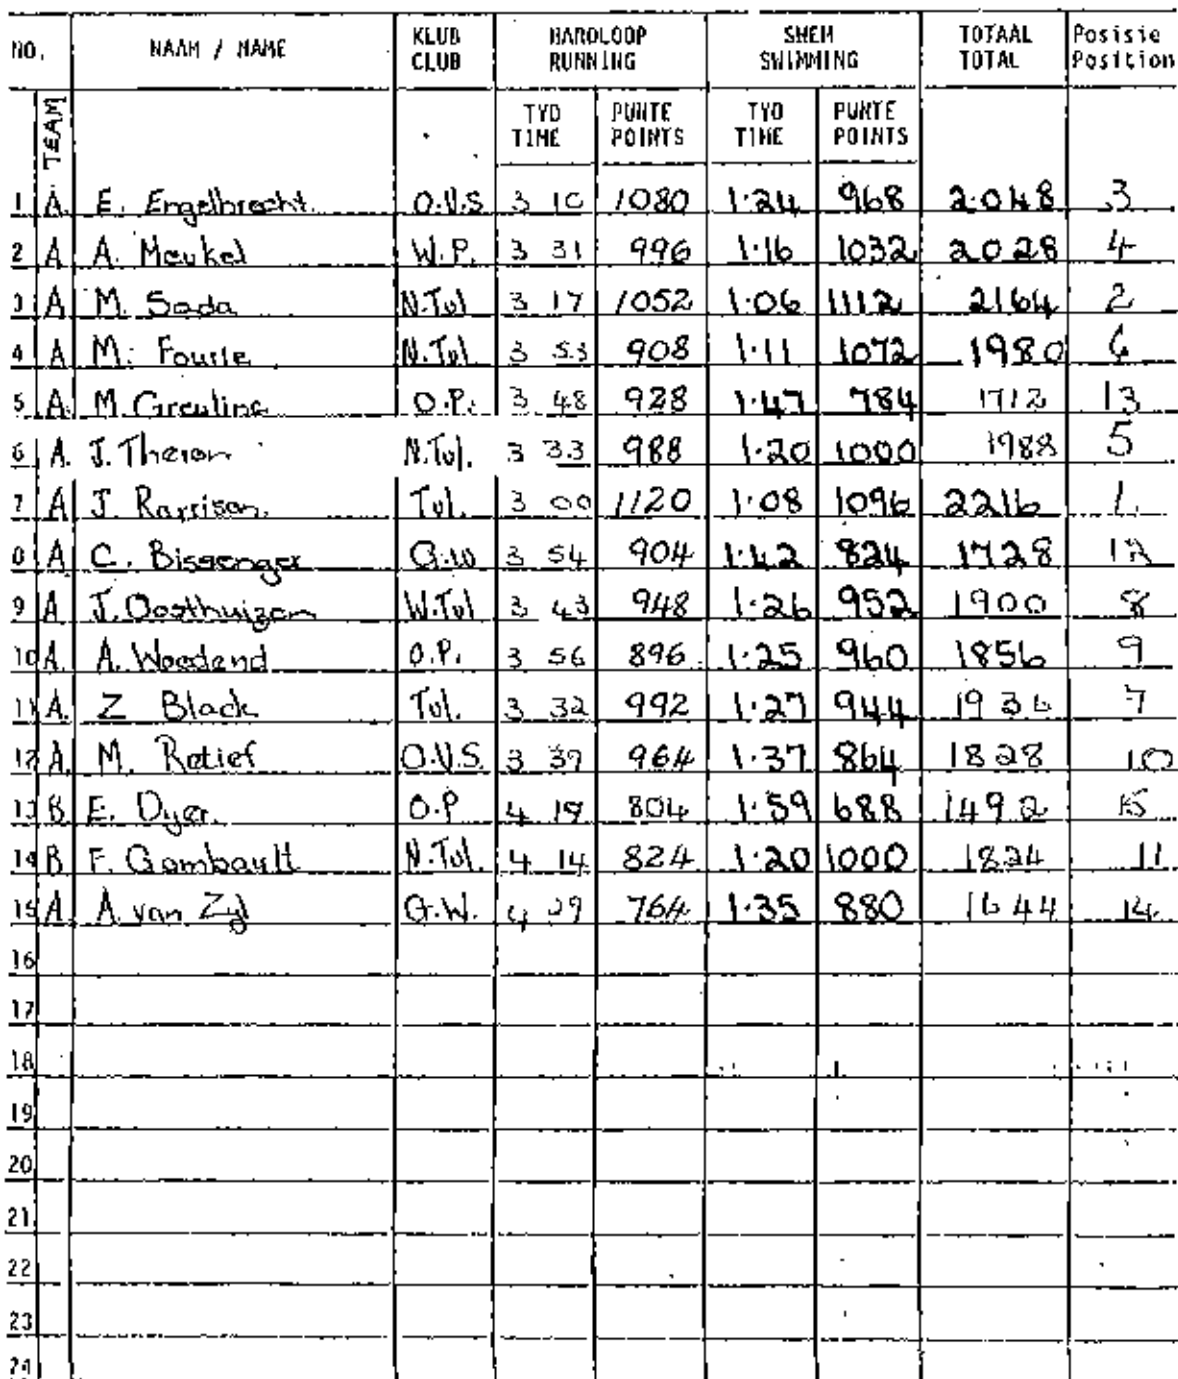 NO. NAAM / NAME KLUB HARDLOOP SWEM TOTAAL Posisie
CLUB RUNNING SWIMMING TOTAL Position
TEAM TYD PUNTE TYD PUNTE
TIME POINTS TIME POINTS
1 A. E. Engelbrecht O.V.S 3 10 1080 1.24 968 2048 3
2 A A. Meukel W.P. 3 31 996 1.16 1032 2028 4
3 A M. Sada N.Tvl 3 17 1052 1.06 1112 2164 2
4 A M. Fourie N.Tvl. 3 53 908 1.11 1072 1980 6
5 A. M. Greyling O.P. 3 48 928 1.47 784 1712 13
6 A. J. Theron N.Tvl. 3 33 988 1.20 1000 1988 5
7 A J. Rarrison. Tvl. 3 00 1120 1.08 1096 2216 1.
8 A C. Bissenger G.W 3 54 904 1.42 824 1728 12
9 A. J. Oosthuizen W.Tvl 3 43 948 1.26 952 1900 8
10 A. A. Woodend O.P. 3 56 896 1.25 960 1856 9
11 A. Z Black Tvl. 3 32 992 1.27 944 1936 7
12 A. M. Retief O.V.S. 3 39 964 1.37 864 1828 10
13 B. E. Dyer. O.P 4 19 804 1.59 688 1492 15
14 B F. Gombault N.Tvl. 4 14 824 1.20 1000 1824 11
15 A. A van Zyl G.W. 4 29 764 1.35 880 1644 14
16
17
18
19
20
21
22
23
24